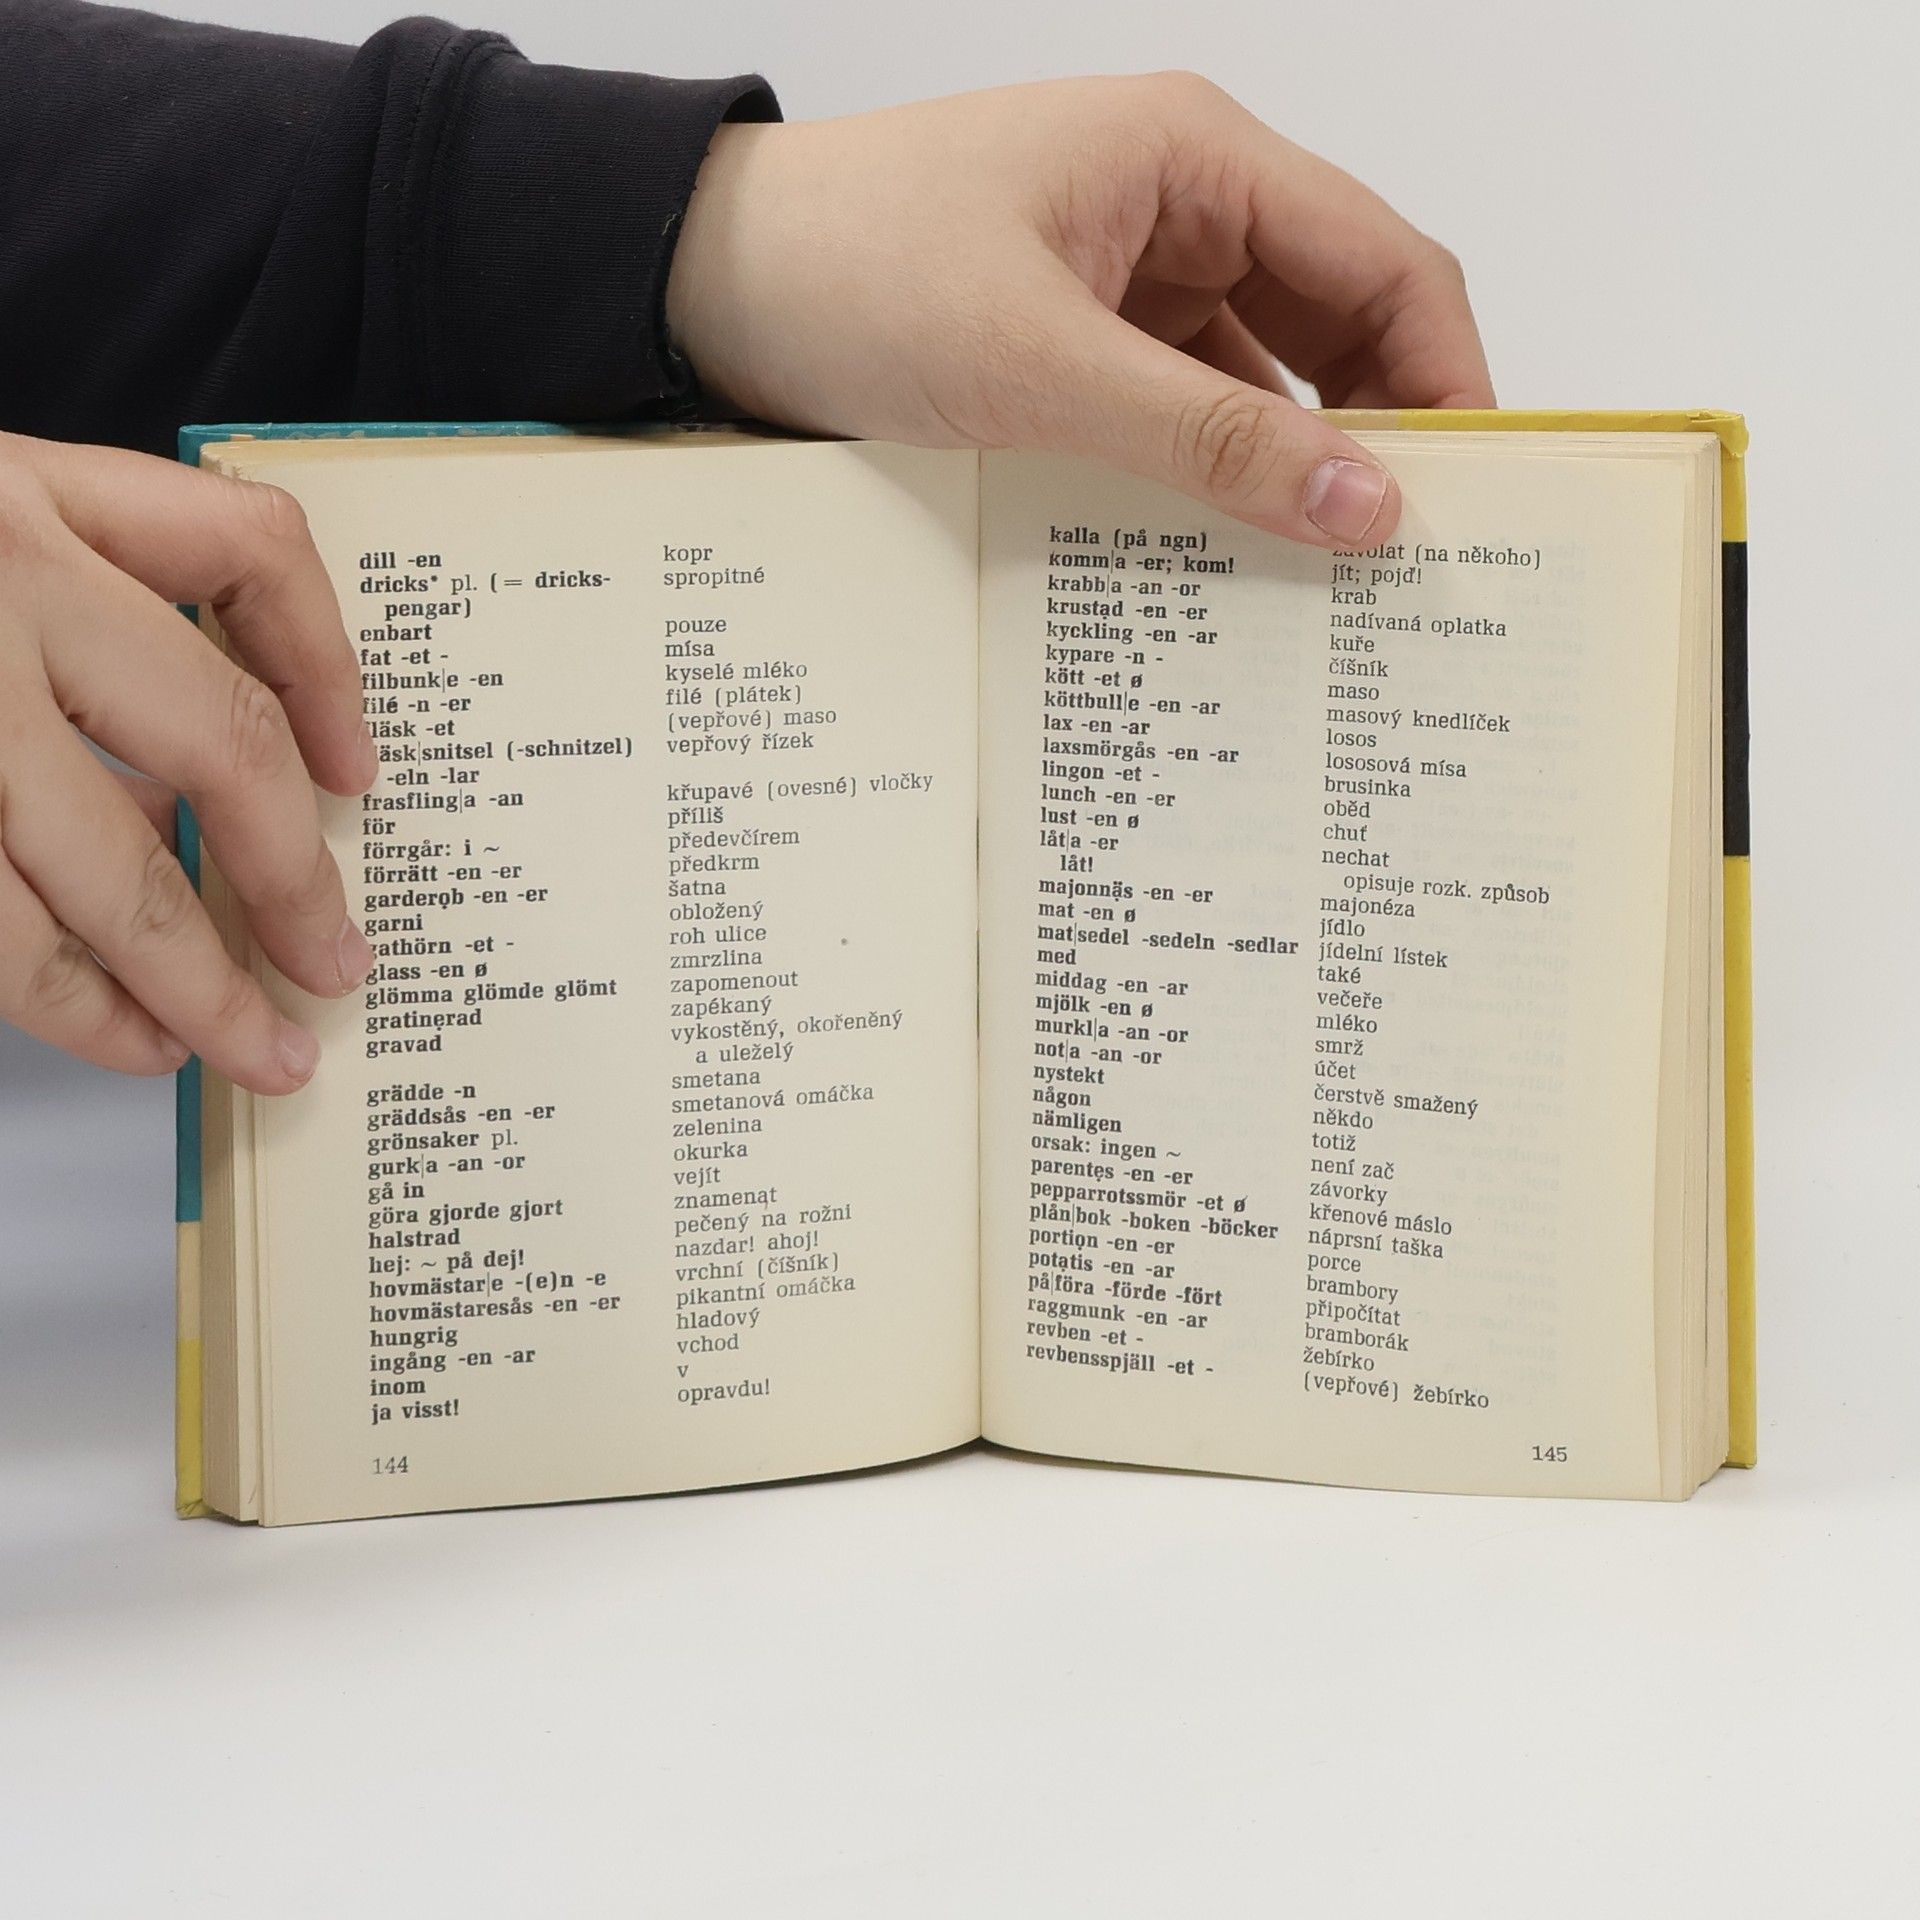 dill -en kopr
dricks* pl. (= dricks- spropitné
pengar)
enbart pouze
fat -et - mísa
filbunk|e -en kyselé mléko
filé -n -er filé (plátek)
-et (vepřové) maso
(-schnitzel) vepřový řízek
-eln -lar
frasfling|a -an křupavé (ovesné) vločky
för příliš
förrgår: i ~ předevčírem
förrätt -en -er předkrm
garderọb -en -er šatna
garni obložený
-et - roh ulice
glass -en ø zmrzlina
glömma glömde glömt zapomenout
gratinẹrad zapékaný
gravad vykostěný, okořeněný
a uleželý
grädde -n smetana
gräddsås -en -er smetanová omáčka
grönsaker pl. zelenina
gurk|a -an -or okurka
gå in vejít
göra gjorde gjort znamenat
halstrad pečený na rožni
hej: ~ på dej! nazdar! ahoj!
hovmästar|e -(e)n -e vrchní (číšník)
hovmästaresås -en -er pikantní omáčka
hungrig hladový
ingång -en -ar vchod
inom v
ja visst! opravdu!
144
kalla (på ngn) (na někoho)
komm|a -er; kom! jít; pojď!
krabb|a -an -or krab
krustạd -en -er nadívaná oplatka
kyckling -en -ar kuře
kypare -n - číšník
kött -et ø maso
köttbull|e -en -ar masový knedlíček
lax -en -ar losos
laxsmörgås -en -ar lososová mísa
lingon -et - brusinka
lunch -en -er oběd
lust -en ø chuť
låt|a -er nechat
låt! opisuje rozk. způsob
majonnạ̈s -en -er majonéza
mat -en ø jídlo
mat|sedel -sedeln -sedlar jídelní lístek
med také
middag -en -ar večeře
mjölk -en ø mléko
murkl|a -an -or smrž
not|a -an -or účet
nystekt čerstvě smažený
någon někdo
nämligen totiž
orsak: ingen ~ není zač
parentẹs -en -er závorky
pepparrotssmör -et ø křenové máslo
plån|bok -boken -böcker náprsní taška
portiọn -en -er porce
potạtis -en -ar brambory
på|föra -förde -fört připočítat
raggmunk -en -ar bramborák
revben -et - žebírko
revbensspjäll -et - (vepřové) žebírko
145